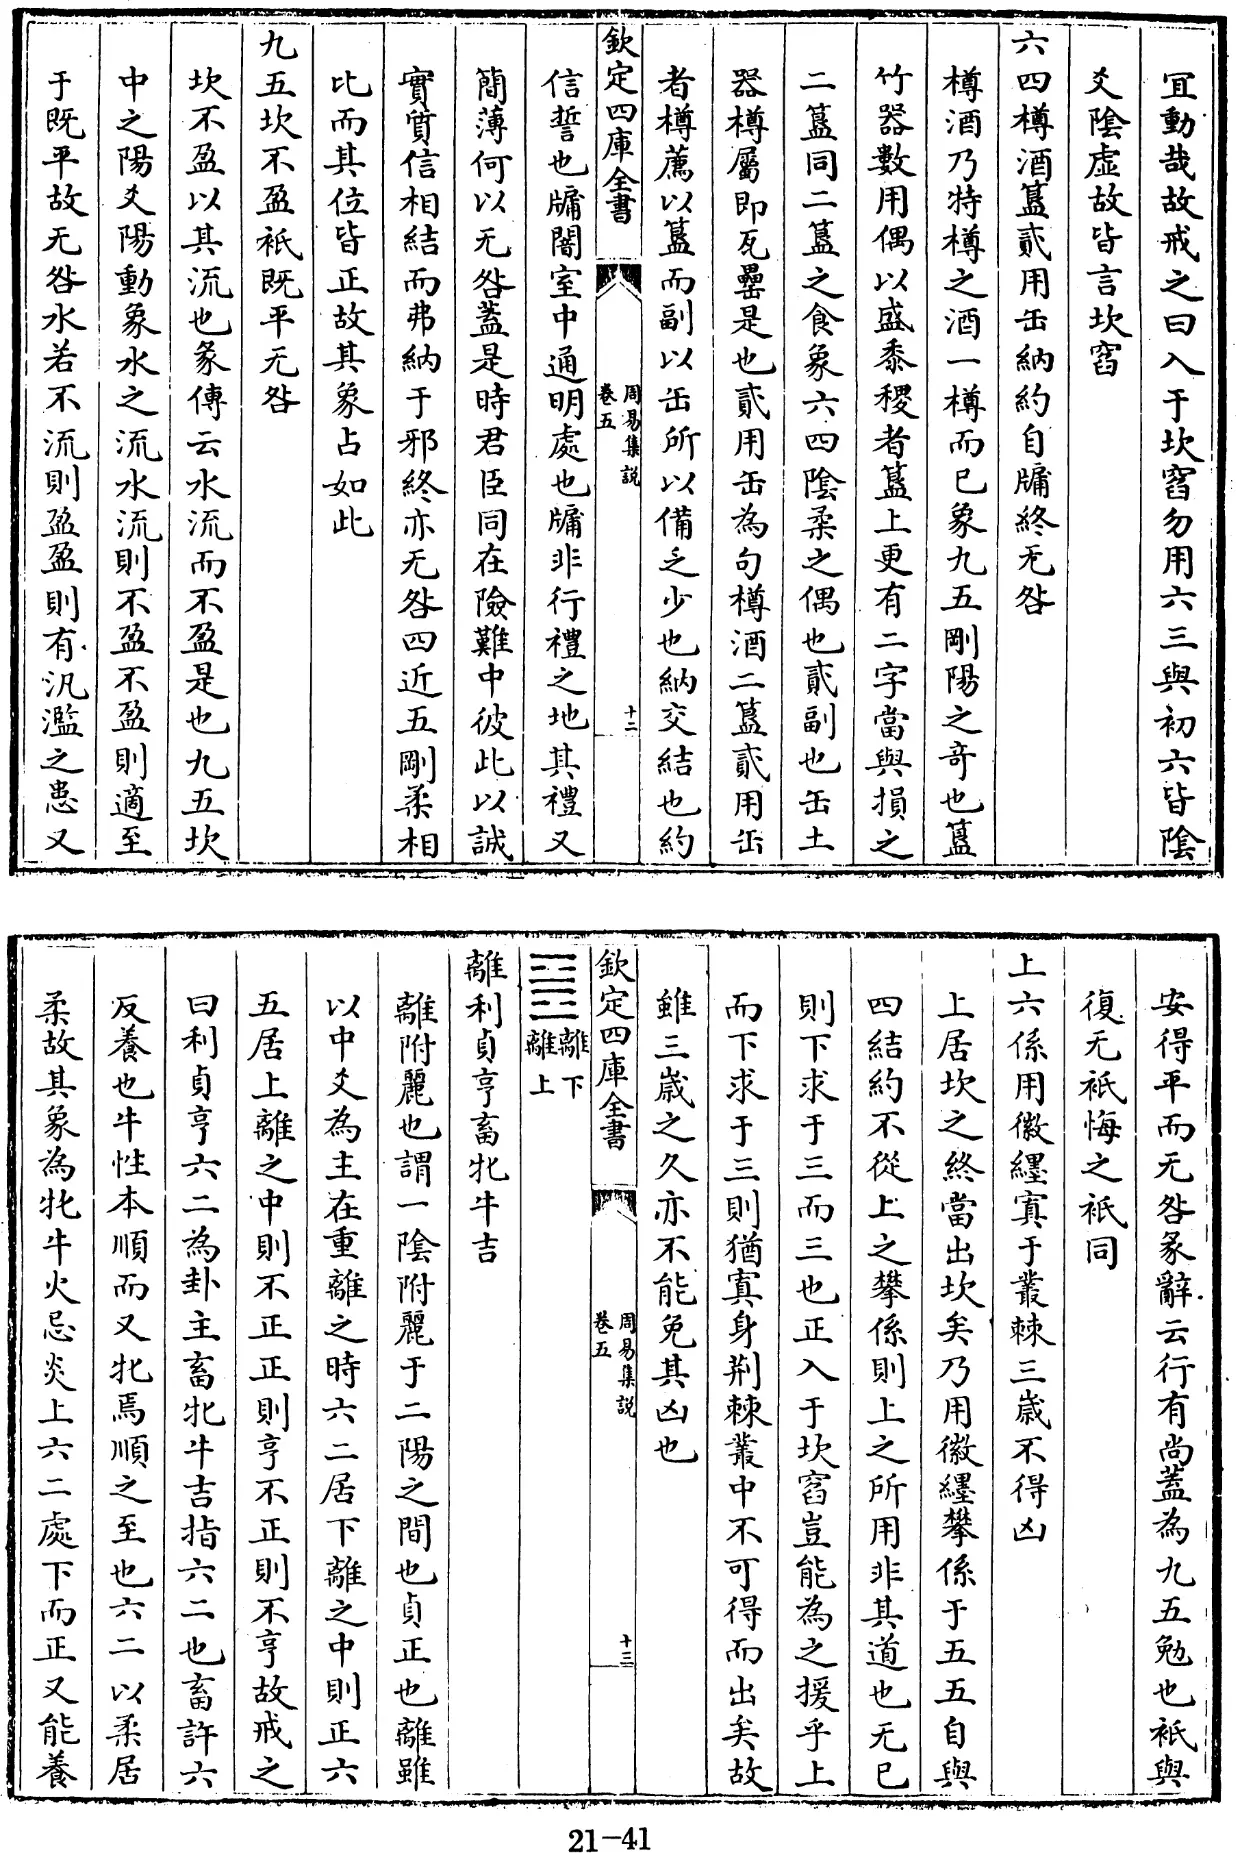 宜動哉故戒之曰入于坎窞勿用六三與初六皆陰
爻陰虛故皆言坎窞
六四樽酒簋貳用缶納約自牖終无咎
樽酒乃特樽之酒一樽而已象九五剛陽之奇也簋
竹器數用偶以盛黍稷者簋上更有二字當與損之
二簋同二簋之食象六四陰柔之偶也貳副也缶土
器樽屬即瓦罍是也貳用缶為句樽酒二簋貳用缶
者樽薦以簋而副以缶所以備乏少也納交結也約
欽定四庫全書
周易集説
卷五
十二
信誓也牖闇室中通明處也牖非行禮之地其禮又
簡薄何以无咎蓋是時君臣同在險難中彼此以誠
實質信相結而弗納于邪終亦无咎四近五剛柔相
比而其位皆正故其象占如此
九五坎不盈祇既平无咎
坎不盈以其流也彖傳云水流而不盈是也九五坎
中之陽爻陽動象水之流水流則不盈不盈則適至
于既平故无咎水若不流則盈盈則有汎濫之患又
安得平而无咎彖辭云行有尚蓋為九五勉也祇與
復无祇悔之祇同
上六係用徽纆寘于叢棘三歲不得凶
上居坎之終當出坎矣乃用徽纆攀係于五五自與
四結約不從上之攀係則上之所用非其道也无已
則下求于三而三也正入于坎窞豈能為之援乎上
而下求于三則猶寘身荆棘叢中不可得而出矣故
雖三歲之久亦不能免其凶也
欽定四庫全書
周易集説
卷五
十三
離下
離上
離利貞亨畜牝牛吉
離附麗也謂一陰附麗于二陽之間也貞正也離雖
以中爻為主在重離之時六二居下離之中則正六
五居上離之中則不正正則亨不正則不亨故戒之
曰利貞亨六二為卦主畜牝牛吉指六二也畜許六
反養也牛性本順而又牝焉順之至也六二以柔居
柔故其象為牝牛火忌炎上六二處下而正又能養
21-41